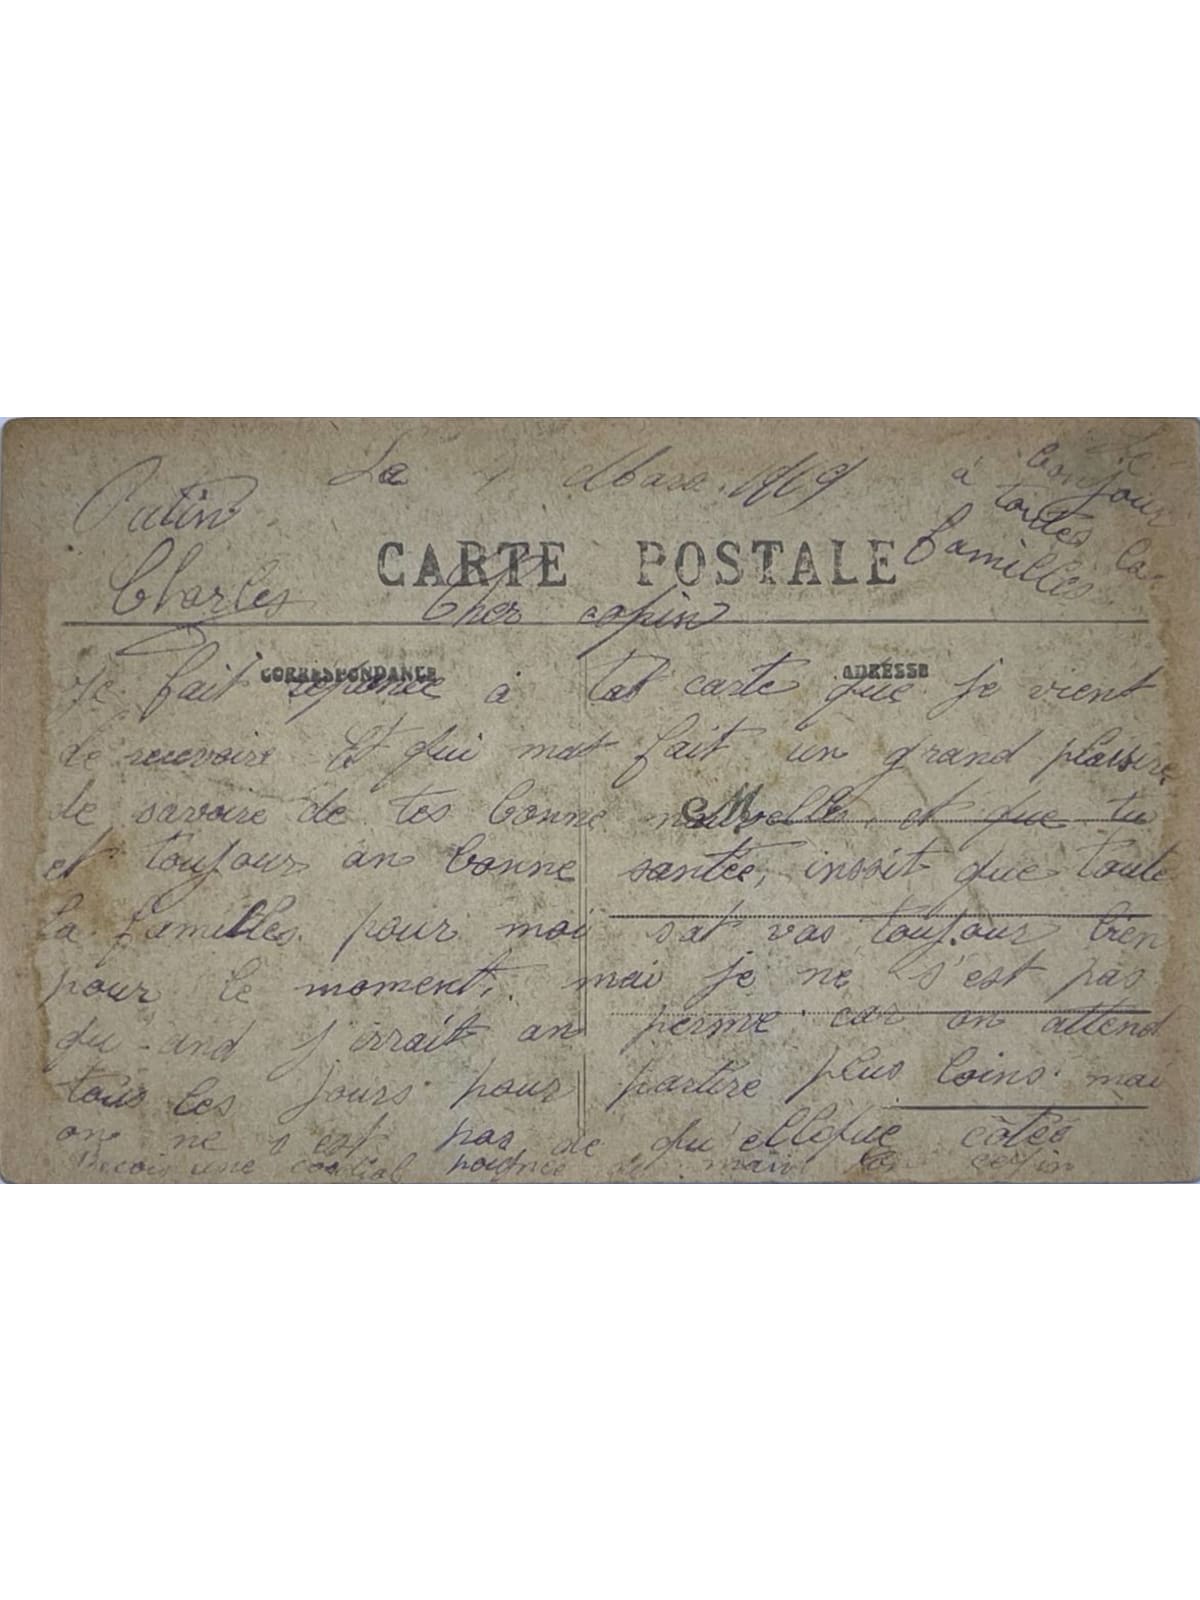 Le 4 Mars 1919
Le
bonjour
à toutes la
familles
Putin
Charles
CARTE POSTALE
Cher copin
CORRESPONDANCE
ADRESSE
Je fait reponce à tat carte que je vient
de recevoire Et qui mat fait un grand plaisire
de savoire de tes bonne nouvelle, et que tu
et toujour an bonne santée, insit que toute
la familles. pour moi sat vas toujour bien
pour le moment, mai je ne s'est pas
qu-and j'irrait an perme car on attend
tous les jours pour partire plus loins. mai
on ne s'est pas de qu'ellque côtés
Recois une cordial poignée de main Ton copin